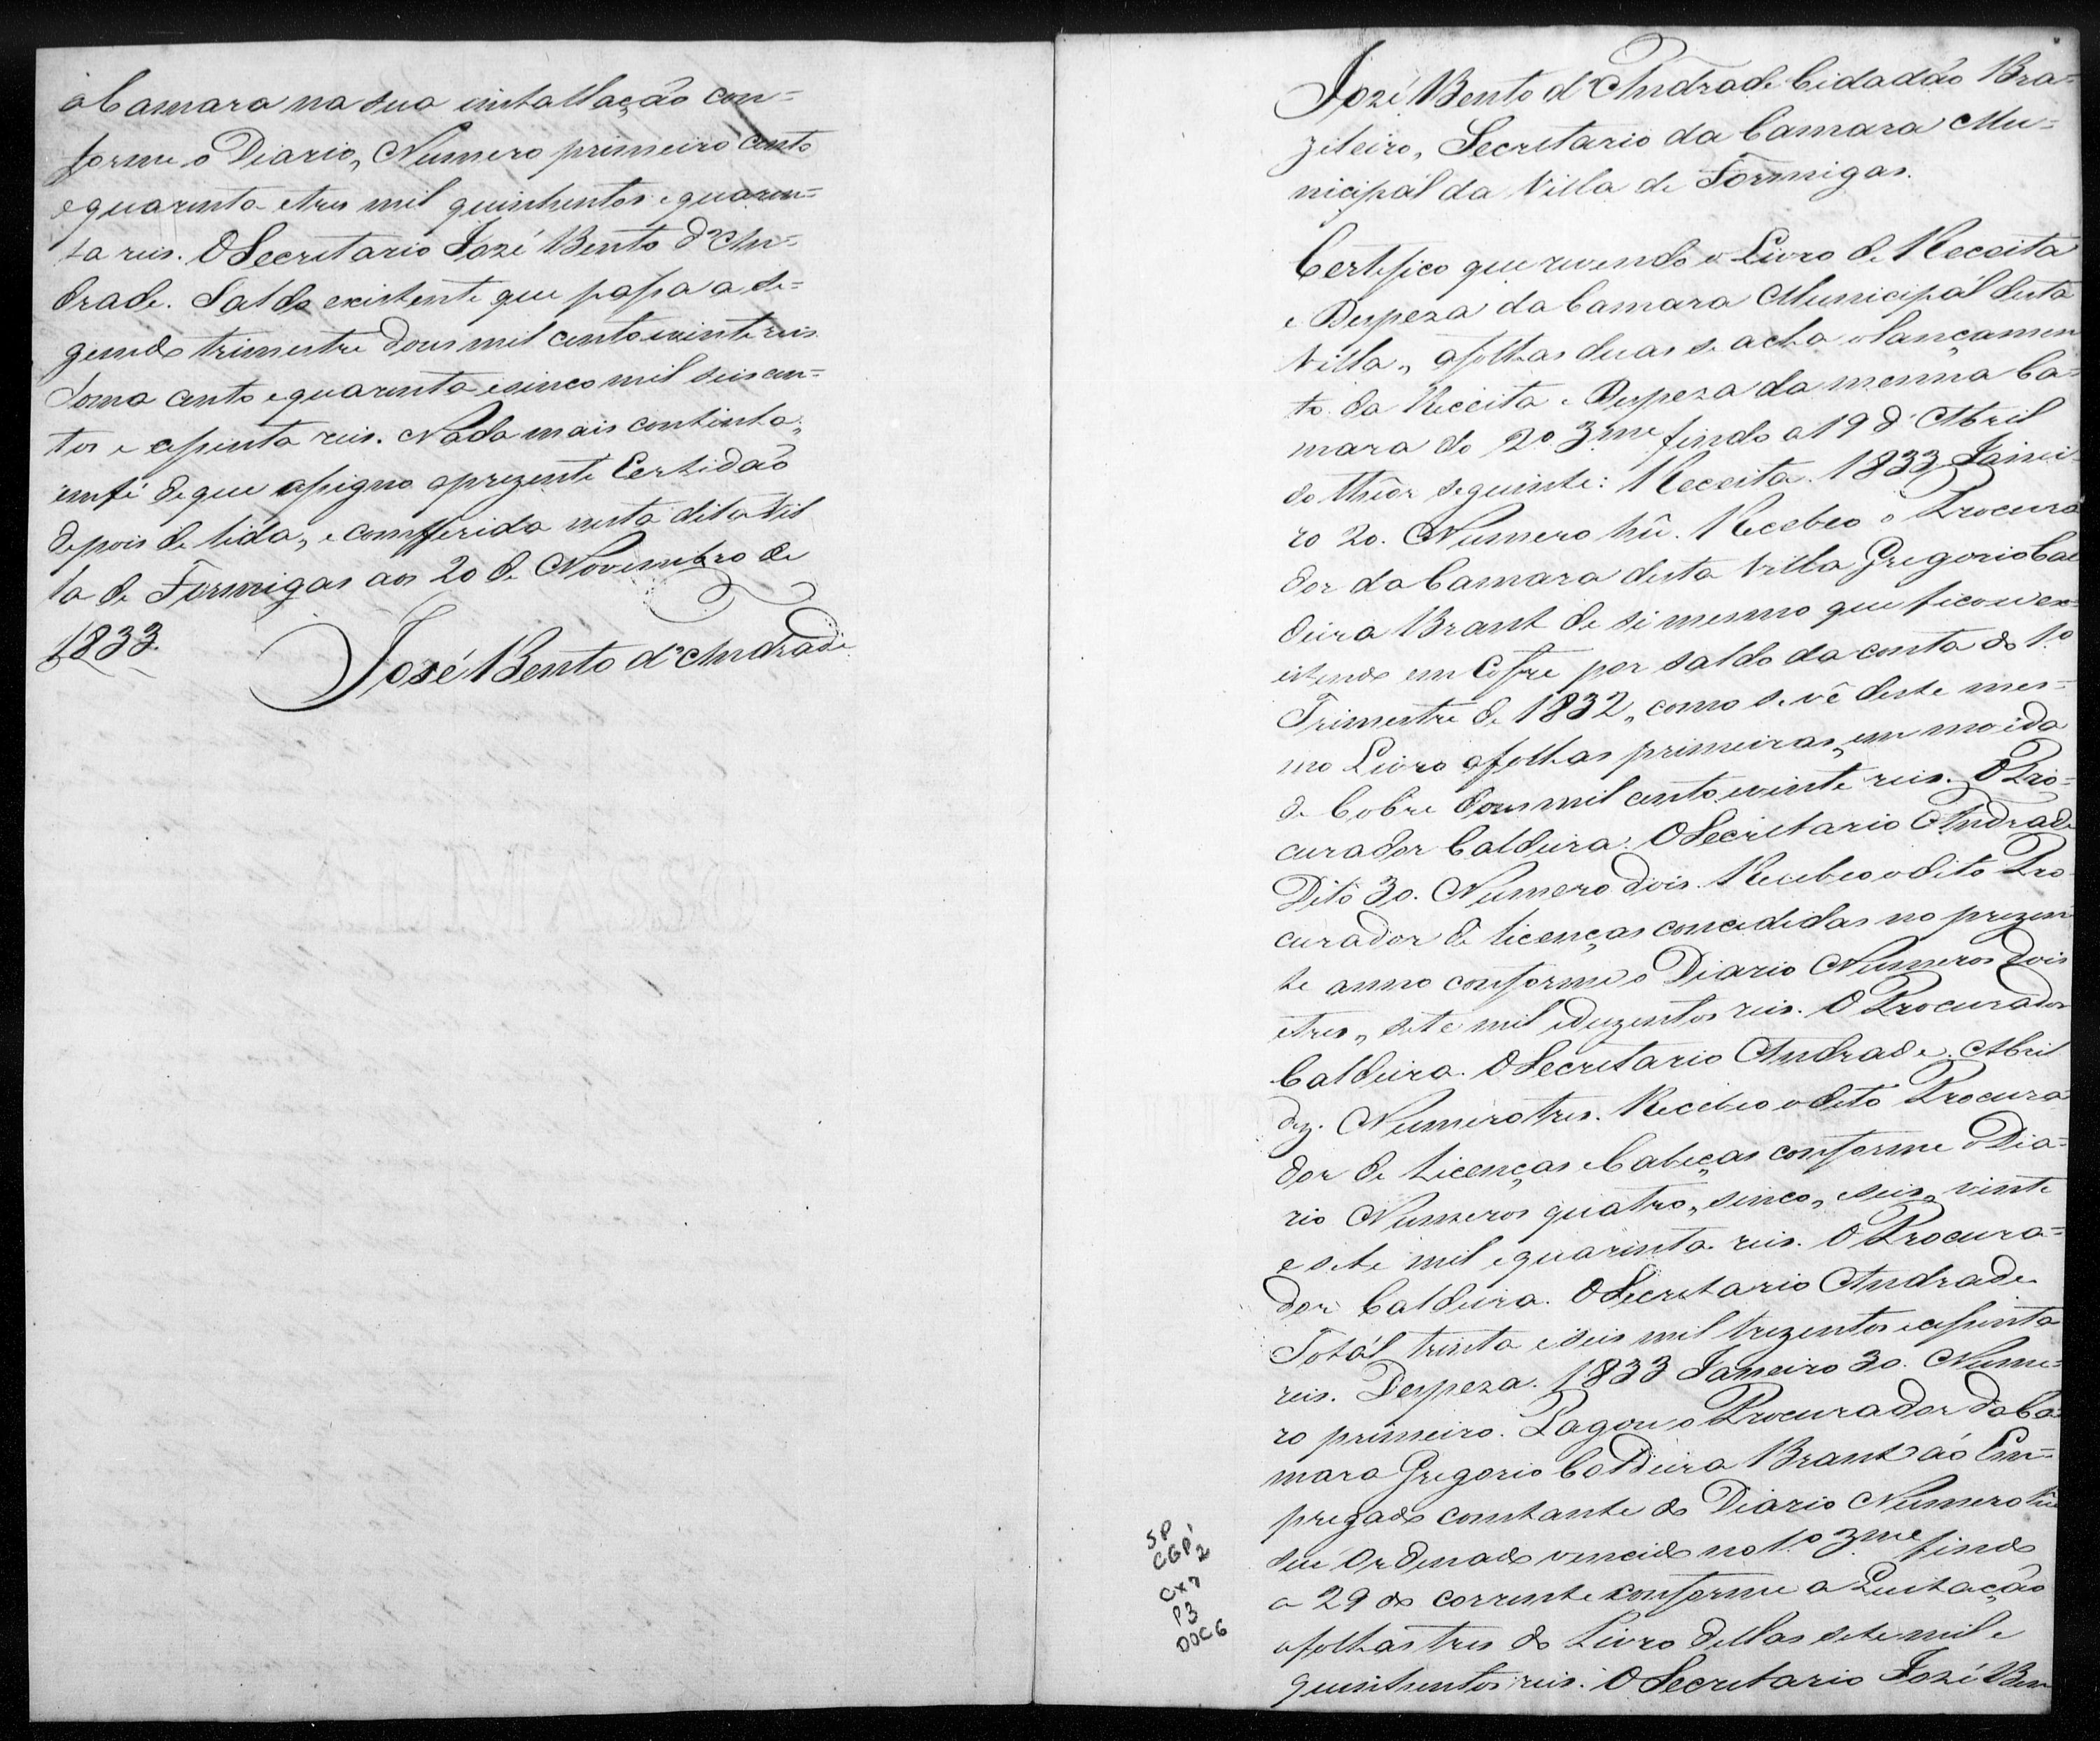 a Camara na sua installação con=
forme o Diario, Numero primeiro cento
e quarenta e tres mil quinhentos e quaren=
ta reis. O Secretario Jozé Bento d'An=
drade. Saldo existente que passa a se=
gundo trimestre dous mil cento e vinte reis
Soma cento e quarenta e sinco mil seis cen=
tos e sessenta reis. Nada mais continha,
em fé de que assigno a prezente Certidão
depois de lida, e comfferida nesta dita Vil
la de Formigas aos 20 de Novembro de
1833.
José Bento d'Andrade
Jozé Bento d'Andrade Cidadão Bra=
zileiro, Secretario da Camara Mu=
nicipál da Villa de Formigas.
Certefico que revendo o Livro de Receita
e Despeza da Camara Municipál desta
Villa, a folhas duas se acha o lançamen
to da Receita e Despeza da mesma Ca=
mara do 2º 3.me findo a 19 d'Abril
do thêor seguinte: Receita. 1833 Janei
ro 20. Numero hû. Recebeo o Procura
dor da Camara desta Villa Gregorio Cal
deira Brant de si mesmo que ficou ex=
istindo em Cofre por saldo da conta do 1º
Trimestre de 1832, como se vê deste mes=
mo Livro a folhas primeiras, em moeda
de Cobre dous mil cento e vinte reis. O Pro=
curador Caldeira. O Secretario Andrade
Dito 30. Numero dois. Recebeo o dito Pro
curador de licenças concedidas no prezen
te anno conforme o Diario Numeros dois
e tres, sete mil e duzentos reis. O Procurador
Caldeira. O Secretario Andrade. Abril
dez. Numero tres. Recebeo o dito Procura
dor de Licenças e Cabeças conforme o Dia=
rio Numeros quatro, sinco, e seis, vinte
e sete mil e quarenta reis. O Procura=
dor Caldeira. O Secretario Andrade
Totál trinta e seis mil trezentos e sessenta
reis. Despeza. 1833 Janeiro 30. Nume=
ro primeiro. Pagou o Procurador da Ca=
mara Gregorio Caldeira Brant áo Em=
pregado constante do Diario Numero hû
seu Ordenado vencido no 1º 3.me findo
a 29 do corrente conforme a Quitação
a folhas tres do Livro dellas sete mil e
quinhentos reis. O Secretario Jozé Ben
SP
CGP¹
2
CX7
P3
DOC6